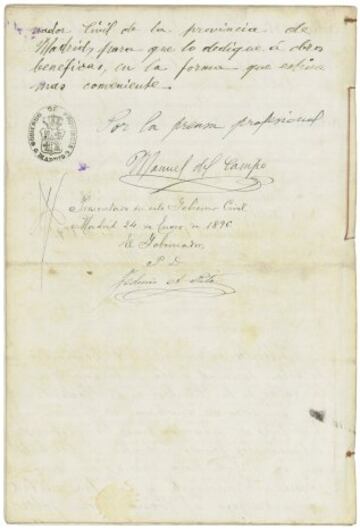 nador Civil de la provincia de
Madrid, para que lo dedique á obras
benéficas, en la forma que estime
mas conveniente.
Por la prensa profesional
Manuel del Campo
GOBIERNO DE PROVINCIA
MADRID
Presentado en este Gobierno Civil
Madrid 24 de Enero de 1896
El Gobernador
P. D.